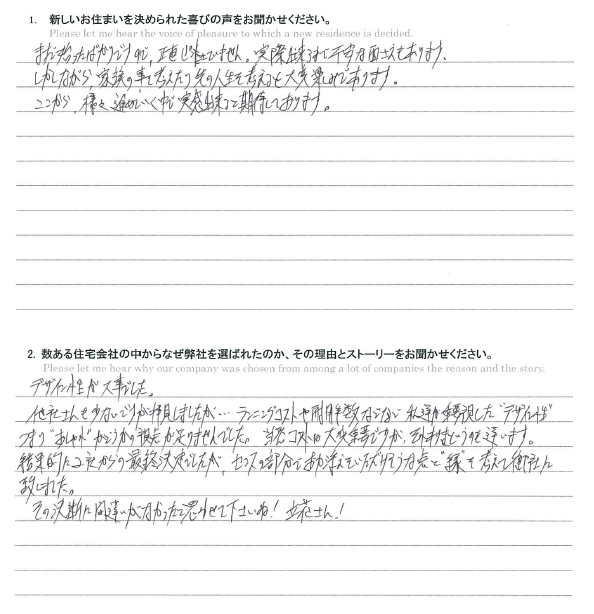 1. 新しいお住まいを決められた喜びの声をお聞かせください。
Please let me hear the voice of pleasure to which a new residence is decided.
まだ決ったばかりですので、正直ピンと来ていません。実際出来るまで不安な面さえもあります、
しかしながら、家族の事を考えたり先の人生を考えると大変楽しみであります。
ここから、様々進めていく中で実感出来るまで期待しております。
2. 数ある住宅会社の中からなぜ弊社を選ばれたのか、その理由とストーリーをお聞かせください。
Please let me hear why our company was chosen from among a lot of companies the reason and the story.
デザイン性が大事でした。
他社さんも少ないですが拝見しましたが… ランニングコストや耐用年数などなど 私達が重要視した "デザイン性"
つまり "おしゃれ" かどうかの視点が足りませんでした。当然コストは大変重要ですが、それ判だけでは違います。
結果的に2社からの最終決定でしたが、センスの部分でお応えていただけそうな点と "縁" を考えて御社に
致しました。
その決断に間違いがなかったと思わせて下さいね! 立花さん!